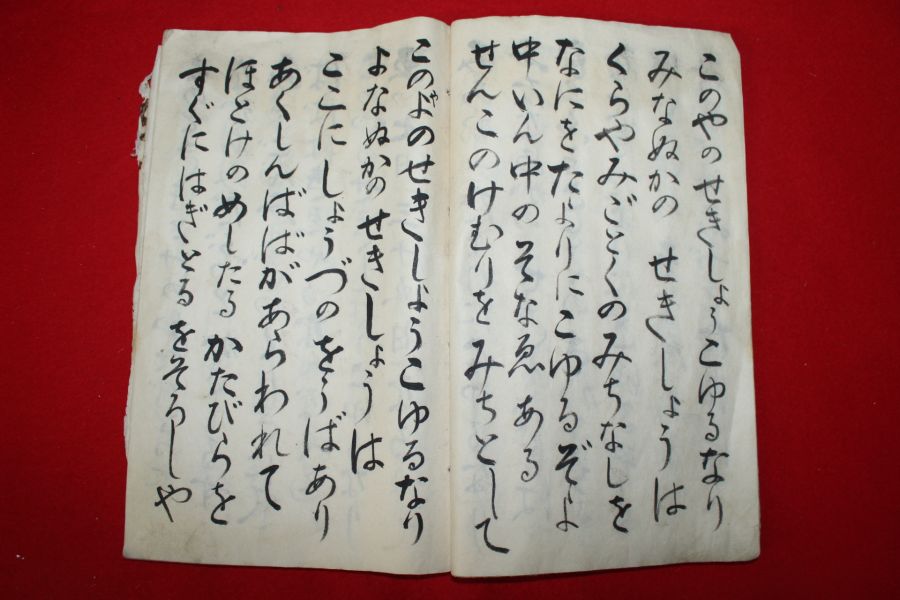 このやのせきしょうこゆるなり
みなぬかの せきしょうは
くらやみごとくのみちなしを
なにをたよりにこゆるぞよ
中いん中のそなゑある
せんこのけむりをみちとして
このよのせきしょうこゆるなり
よなぬかの せきしょうは
ここにしょうづのをうばあり
あくしんばばがあらわれて
ほとけのめしたるかたびらを
すぐにはぎとるをそろしや